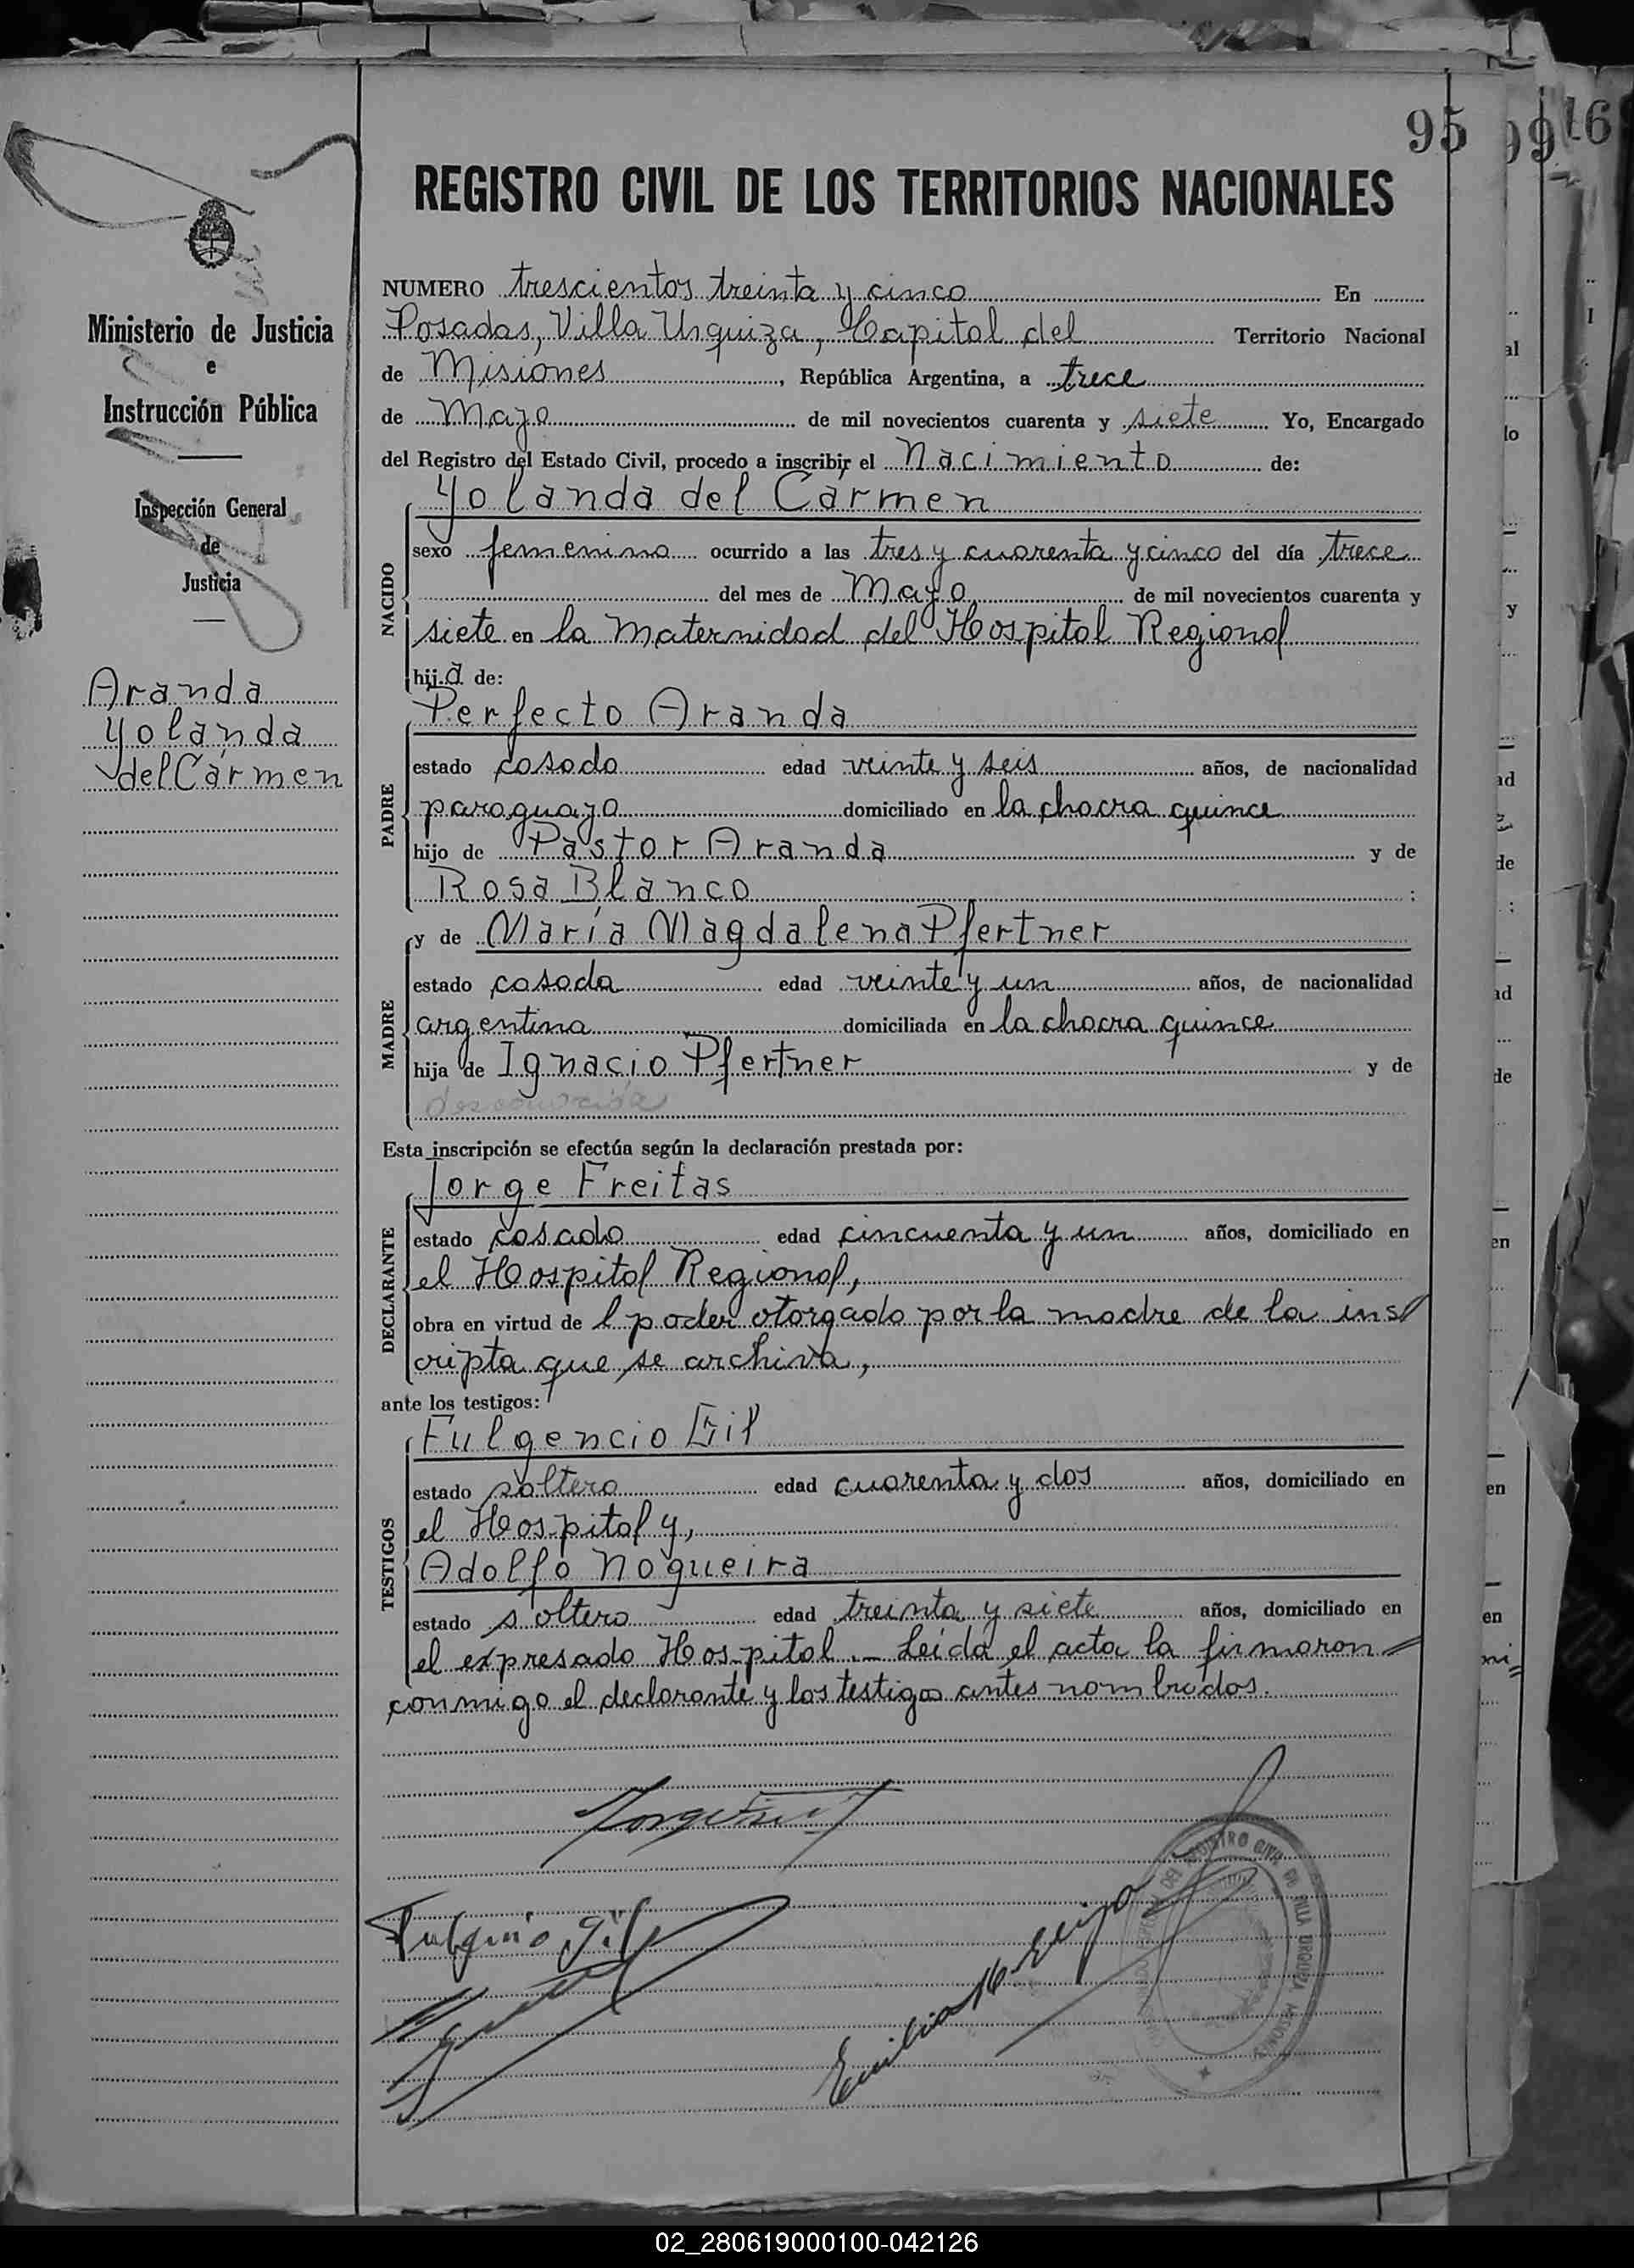 95
99
16
REGISTRO CIVIL DE LOS TERRITORIOS NACIONALES
Ministerio de Justicia
e
Instrucción Pública
Inspección General
de
Justicia
Aranda
Yolanda
del Cármen
NUMERO trescientos treinta y cinco En
Posadas, Villa Urquiza, Capital del Territorio Nacional
de Misiones, República Argentina, a trece
de Mayo de mil novecientos cuarenta y siete Yo, Encargado
del Registro del Estado Civil, procedo a inscribir el Nacimiento de:
NACIDO
Yolanda del Cármen
sexo femenino ocurrido a las tres y cuarenta y cinco del día trece
del mes de Mayo de mil novecientos cuarenta y
siete en la Maternidad del Hospital Regional
hija de:
PADRE
Perfecto Aranda
estado casado edad veinte y seis años, de nacionalidad
paraguayo domiciliado en la chacra quince
hijo de Pastor Aranda y de
Rosa Blanco :
MADRE
y de María Magdalena Pfertner
estado casada edad veinte y un años, de nacionalidad
argentina domiciliada en la chacra quince
hija de Ignacio Pfertner y de
desconocida
Esta inscripción se efectúa según la declaración prestada por:
DECLARANTE
Jorge Freitas
estado casado edad cincuenta y un años, domiciliado en
el Hospital Regional,
obra en virtud de l poder otorgado por la madre de la ins/
cripta que se archiva,
ante los testigos:
TESTIGOS
Fulgencio Gil
estado soltero edad cuarenta y dos años, domiciliado en
el Hospital y,
Adolfo Nogueira
estado soltero edad treinta y siete años, domiciliado en
el expresado Hospital.- Leída el acta la firmaron=
conmigo el declarante y los testigos antes nombrados.
Fulgencio Gil
Emilio
REGISTRO CIVIL DE VILLA URQUIZA MISIONES
02_280619000100-042126